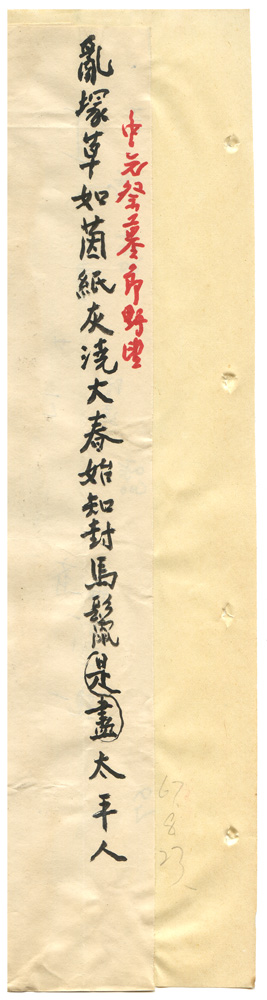 中元祭墓野望
亂塚草如茵紙灰澆大春始知封馬鬣是盡太平人
67.
8
23